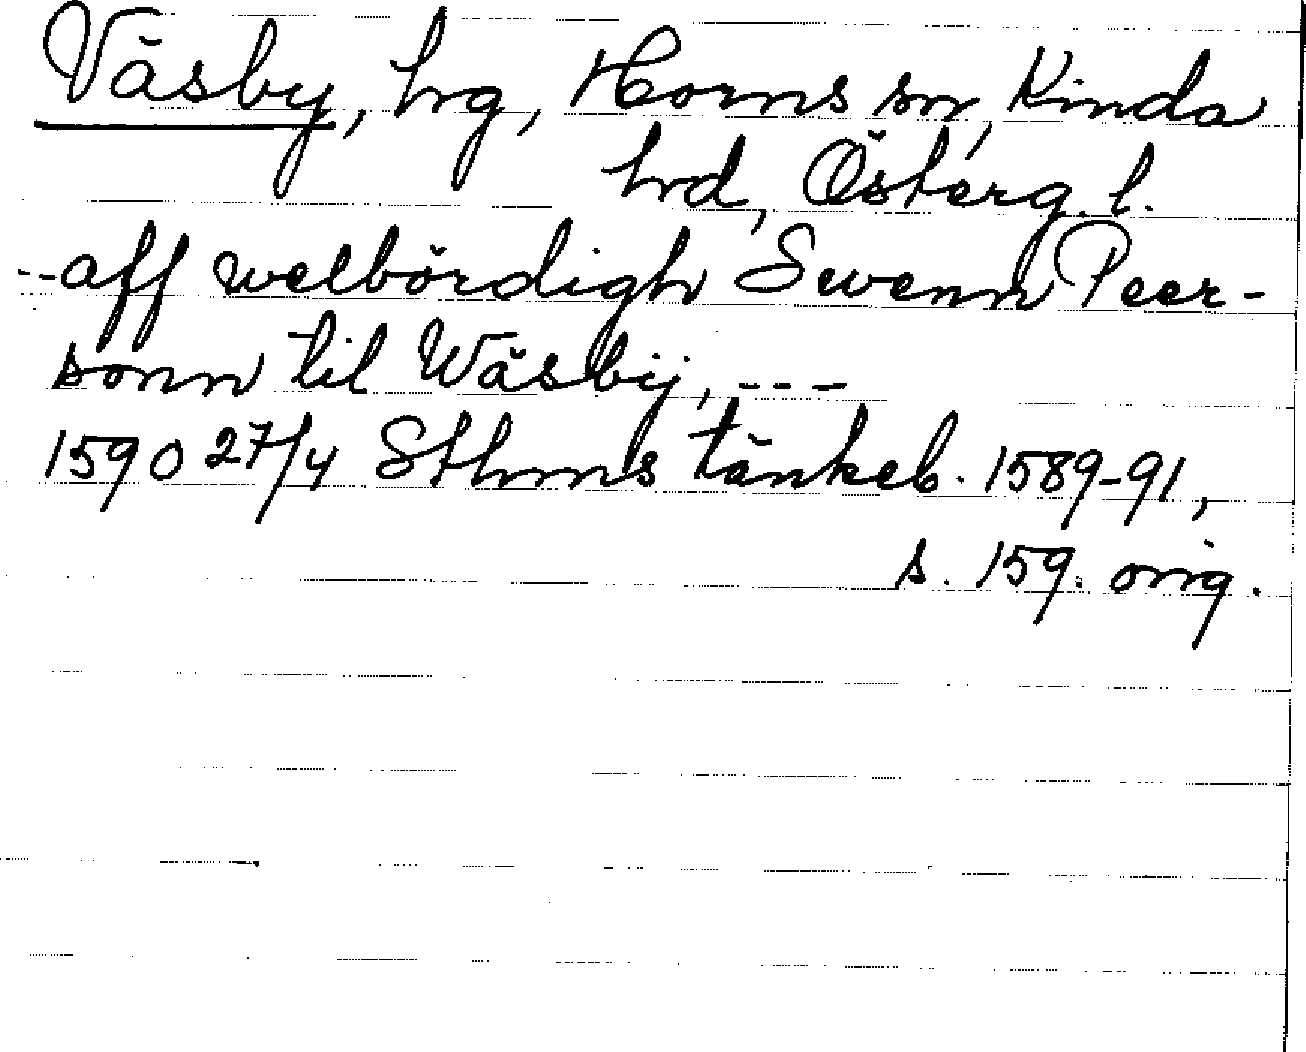 Väsby, hrg, Horns sn, Kinda
hrd, Österg. l.
--aff welbördigh Swenn Peer-
sonn til Wäsbij, ---
1590 27/4 Sthms tänkeb. 1589-91,
s. 159. orig.